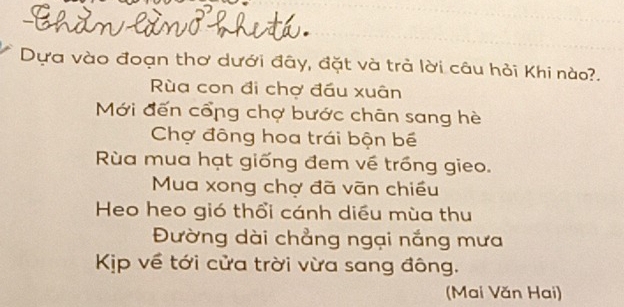 -Thằn lằn ở khe tá.
Dựa vào đoạn thơ dưới đây, đặt và trả lời câu hỏi Khi nào?.
Rùa con đi chợ đầu xuân
Mới đến cổng chợ bước chân sang hè
Chợ đông hoa trái bộn bề
Rùa mua hạt giống đem về trồng gieo.
Mua xong chợ đã vãn chiều
Heo heo gió thổi cánh diều mùa thu
Đường dài chẳng ngại nắng mưa
Kịp về tới cửa trời vừa sang đông.
(Mai Văn Hai)